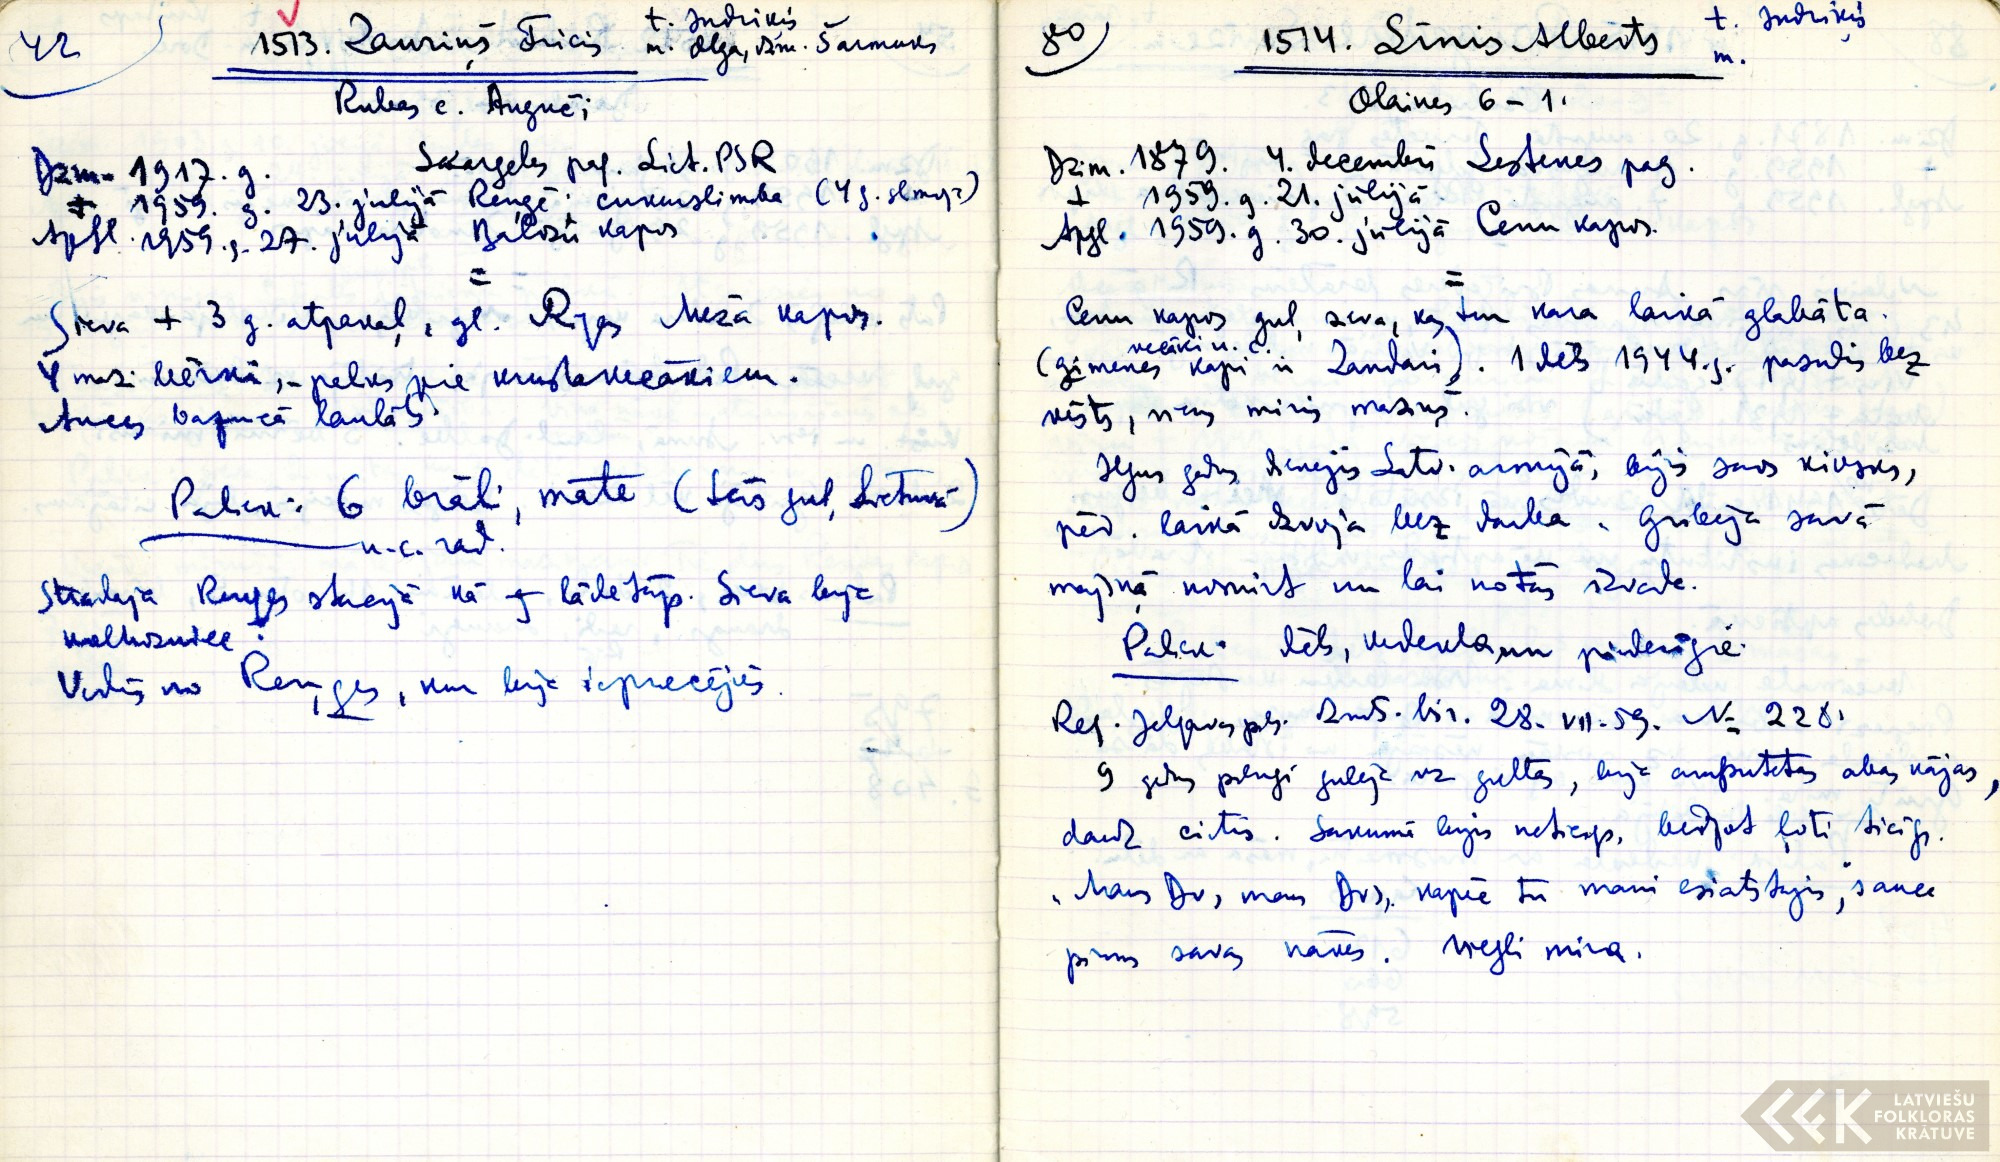 42
1513. Lauriņš Fricis t. Indriķis
m. Olga, dzim. Šarmuks
Rubas c. Auguči
Dzim. 1917. g. Skaņgeles pag. Liet. PSR
+ 1959. g. 23. jūlijā Reņģē; cukurslimība (4 g. slimoja)
Apgl. 1959. g. 27. jūlijā Baložu kapos
=
Sieva + 3 g. atpakaļ, gl. Rīgas Meža kapos.
4 mazi bērni, palks pie krustvecākiem.
Auces baznīcā laulāts
Paliek: 6 brāļi, māte (tēvs guļ Lietuvā)
u.c. rad.
Strādāja Reņģes stacijā kā
kolhozniece.
Vedīs no Reņģes, kur bija ieprecējies.
80
1514. Līnis Alberts t. Indriķis
m.
Olaines 6 – 1.
Dzim. 1879. g. 4. decembrī Lestenes pag.
+ 1959. g. 21. jūlijā
Apgl. 1959. g. 30. jūlijā Cenu kapos.
=
Cenu kapos guļ sieva, kas tur kara laikā glabāta.
vecāki u.c.
(ģimenes kapi ir Zandari). 1 dēls 1944. g. pazudis bez
vēsts, viens miris maziņš.
Ilgus gadus dienējis Latv. armijā, bijis savs kiosks,
pēd. laikā dzīvoja bez darba. Gribēja savā
mājiņā nomirt un lai no tās izvada.
Paliek: dēls, vedekla un piederīgie.
Reģ. Jelgavas pils. Dzimts. bir. 28. VII. 59. № 228.
9 gadus pilnīgi gulēja uz gultas, bija amputētas abas kājas,
daudz cietis. Sākumā bijis neticīgs, beidzot ļoti ticīgs.
"Mans Dievs, mans Dievs, kāpēc tu mani esi atstājis", sauca
pirms savas nāves. Viegli mira.
LATVIEŠU
FOLKLORAS
KRĀTUVE